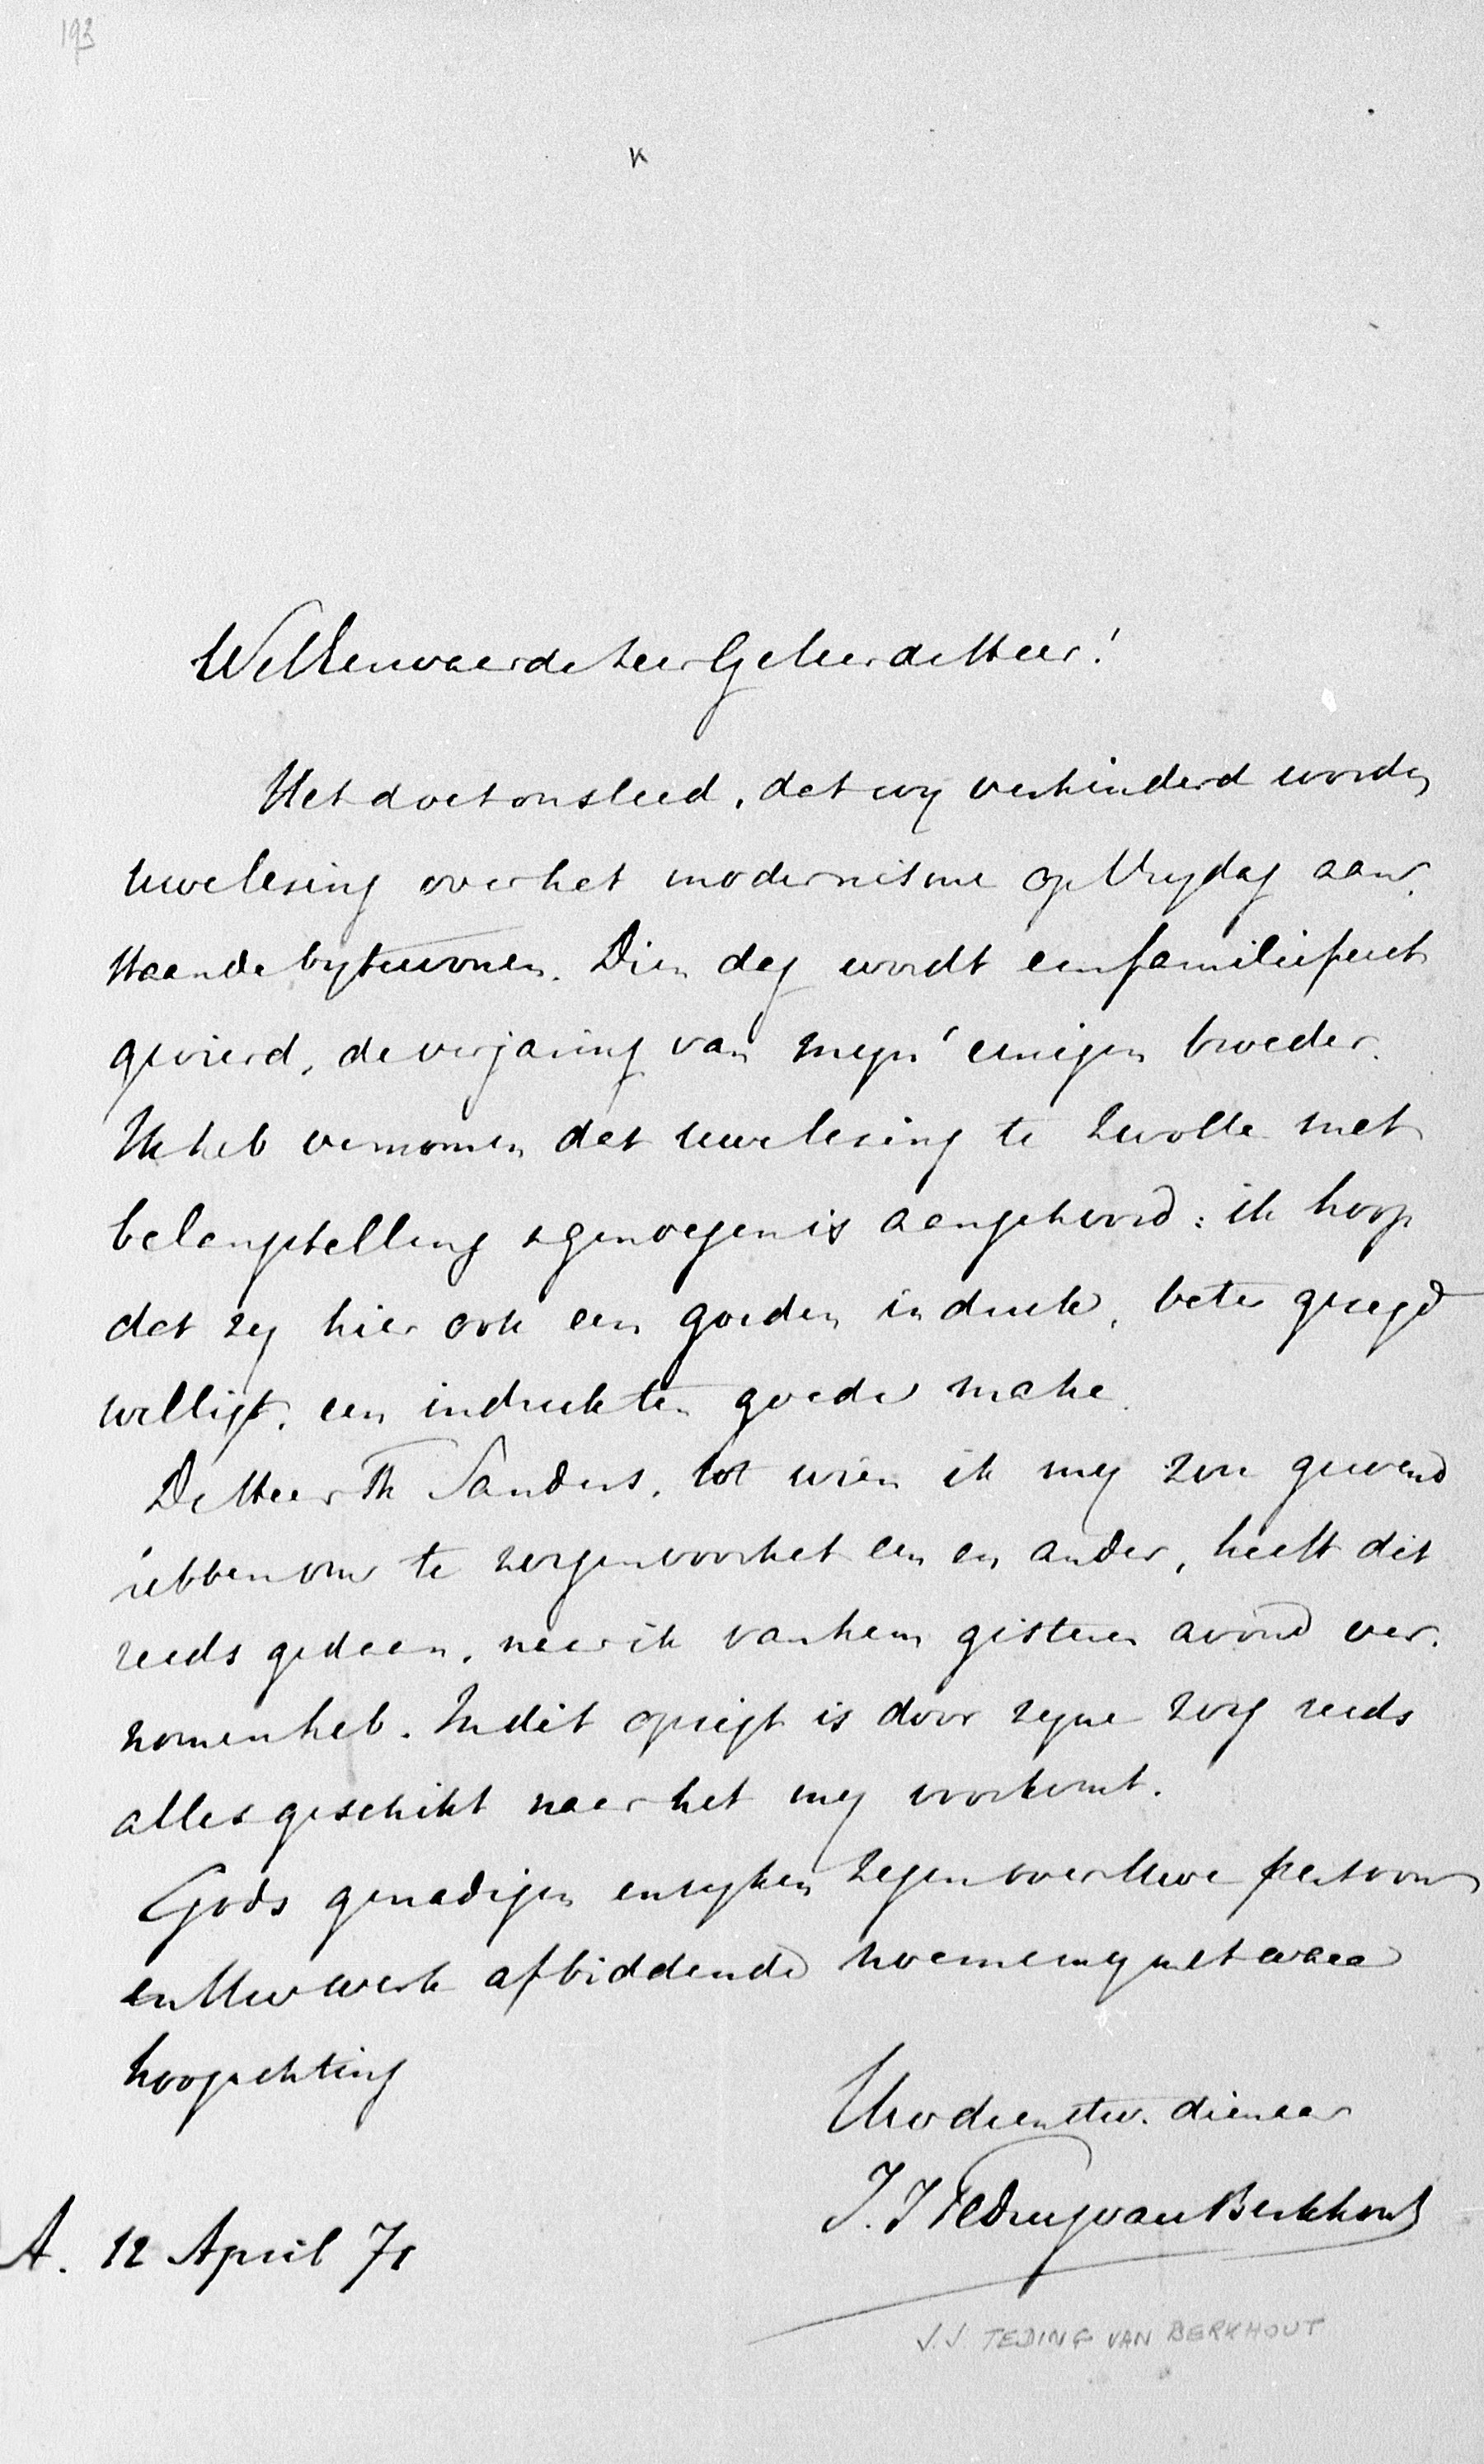 193
K
WelEerwaarde Zeer Geleerde Heer!
Het doet ons leed, dat wij verhinderd worden
uwe lezing over het modernisme op Vrijdag aan-
staande bij te wonen. Dien dag wordt een familiefeest
gevierd, de verjaring van mijn' eenigen broeder.
Ik heb vernomen dat uwe lezing te Zwolle met
belangstelling & genoegen is aangehoord: ik hoop
dat zij hier ook een goeden indruk, beter gezegd
welligt, een indruk ten goede make.
De Heer Th Sanders, tot wien ik mij zou gewend
hebben om te zorgen voor het een en ander, heeft dit
reeds gedaan, naar ik van hem gisteren avond ver-
nomen heb. In dit opzigt is door zijne zorg reeds
alles geschikt naar het mij voorkomt.
Gods genadigen en rijken zegen over Uwe persoon
en Uw werk afbiddende noem ik mij met ware
hoogachting
Uw dienstw. dienaar
J. J Teding van Berkhout
A. 12 April 71
J.J. TEDING VAN BERKHOUT